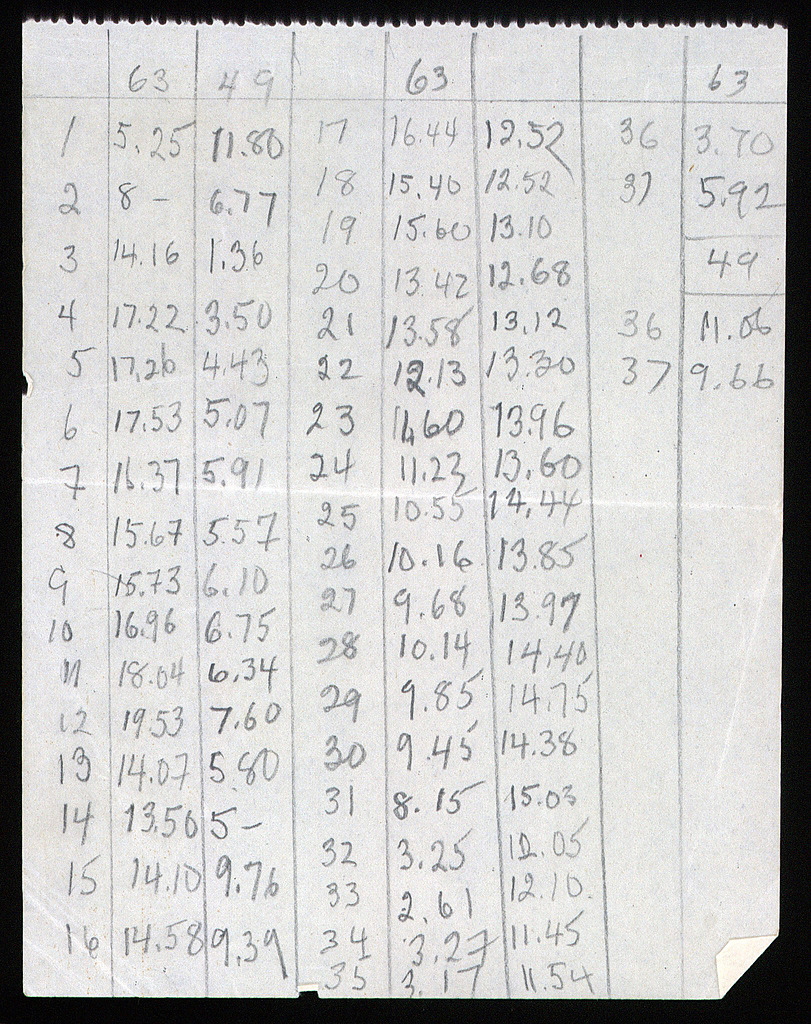 63 49 63 63
1 5.25 11.80 17 16.44 12.52 36 3.70
2 8 – 6.77 18 15.40 12.52 37 5.92
3 14.16 1.36 19 15.60 13.10 49
4 17.22 3.50 20 13.42 12.68 36 11.06
5 17.26 4.43 21 13.58 13.12 37 9.66
6 17.53 5.07 22 12.13 13.30
7 16.37 5.91 23 11.60 13.96
8 15.67 5.57 24 11.23 13.60
9 15.73 6.10 25 10.55 14.44
10 16.96 6.75 26 10.16 13.85
11 18.04 6.34 27 9.68 13.97
12 19.53 7.60 28 10.14 14.40
13 14.07 5.80 29 9.85 14.75
14 13.50 5 – 30 9.45 14.38
15 14.10 9.76 31 8.15 15.03
16 14.58 9.39 32 3.25 12.05
33 2.61 12.10.
34 3.27 11.45
35 3.17 11.54